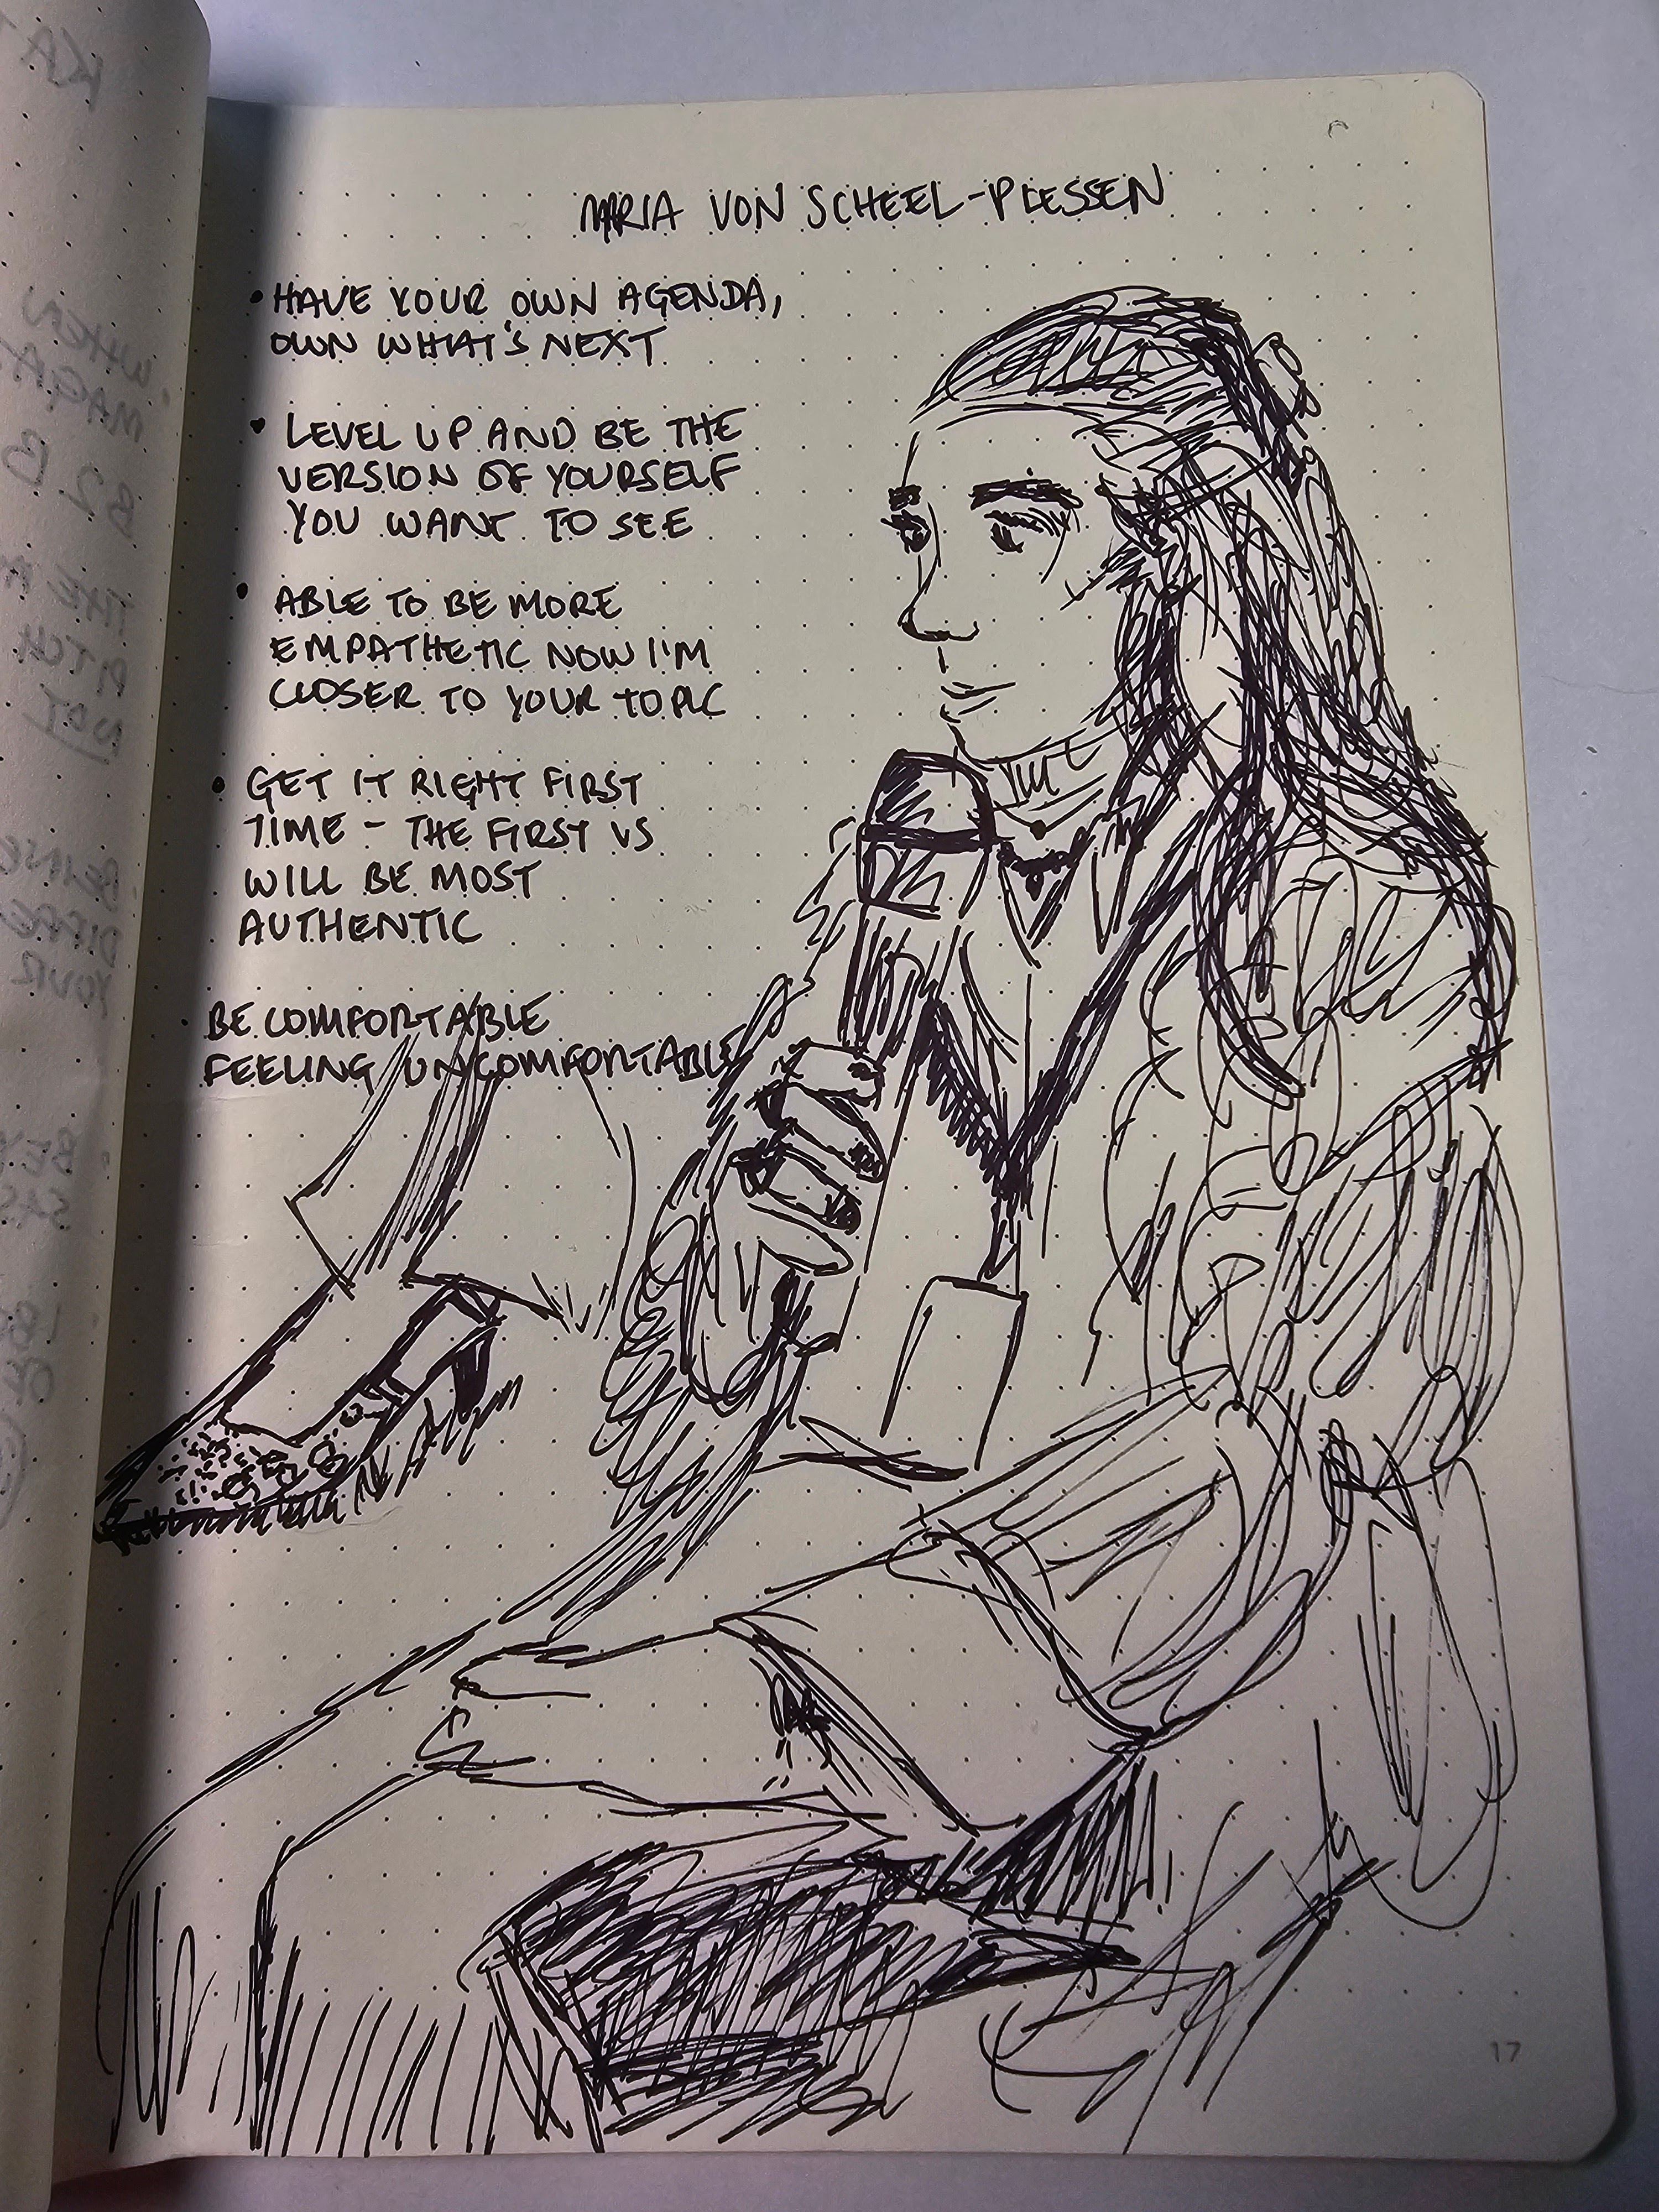 MARIA VON SCHEEL-PLESSEN
• HAVE YOUR OWN AGENDA,
OWN WHAT'S NEXT
• LEVEL UP AND BE THE
VERSION OF YOURSELF
YOU WANT TO SEE
• ABLE TO BE MORE
EMPATHETIC NOW I'M
CLOSER TO YOUR TOPIC
• GET IT RIGHT FIRST
TIME - THE FIRST VS
WILL BE MOST
AUTHENTIC
• BE COMFORTABLE
FEELING UNCOMFORTABLE
17